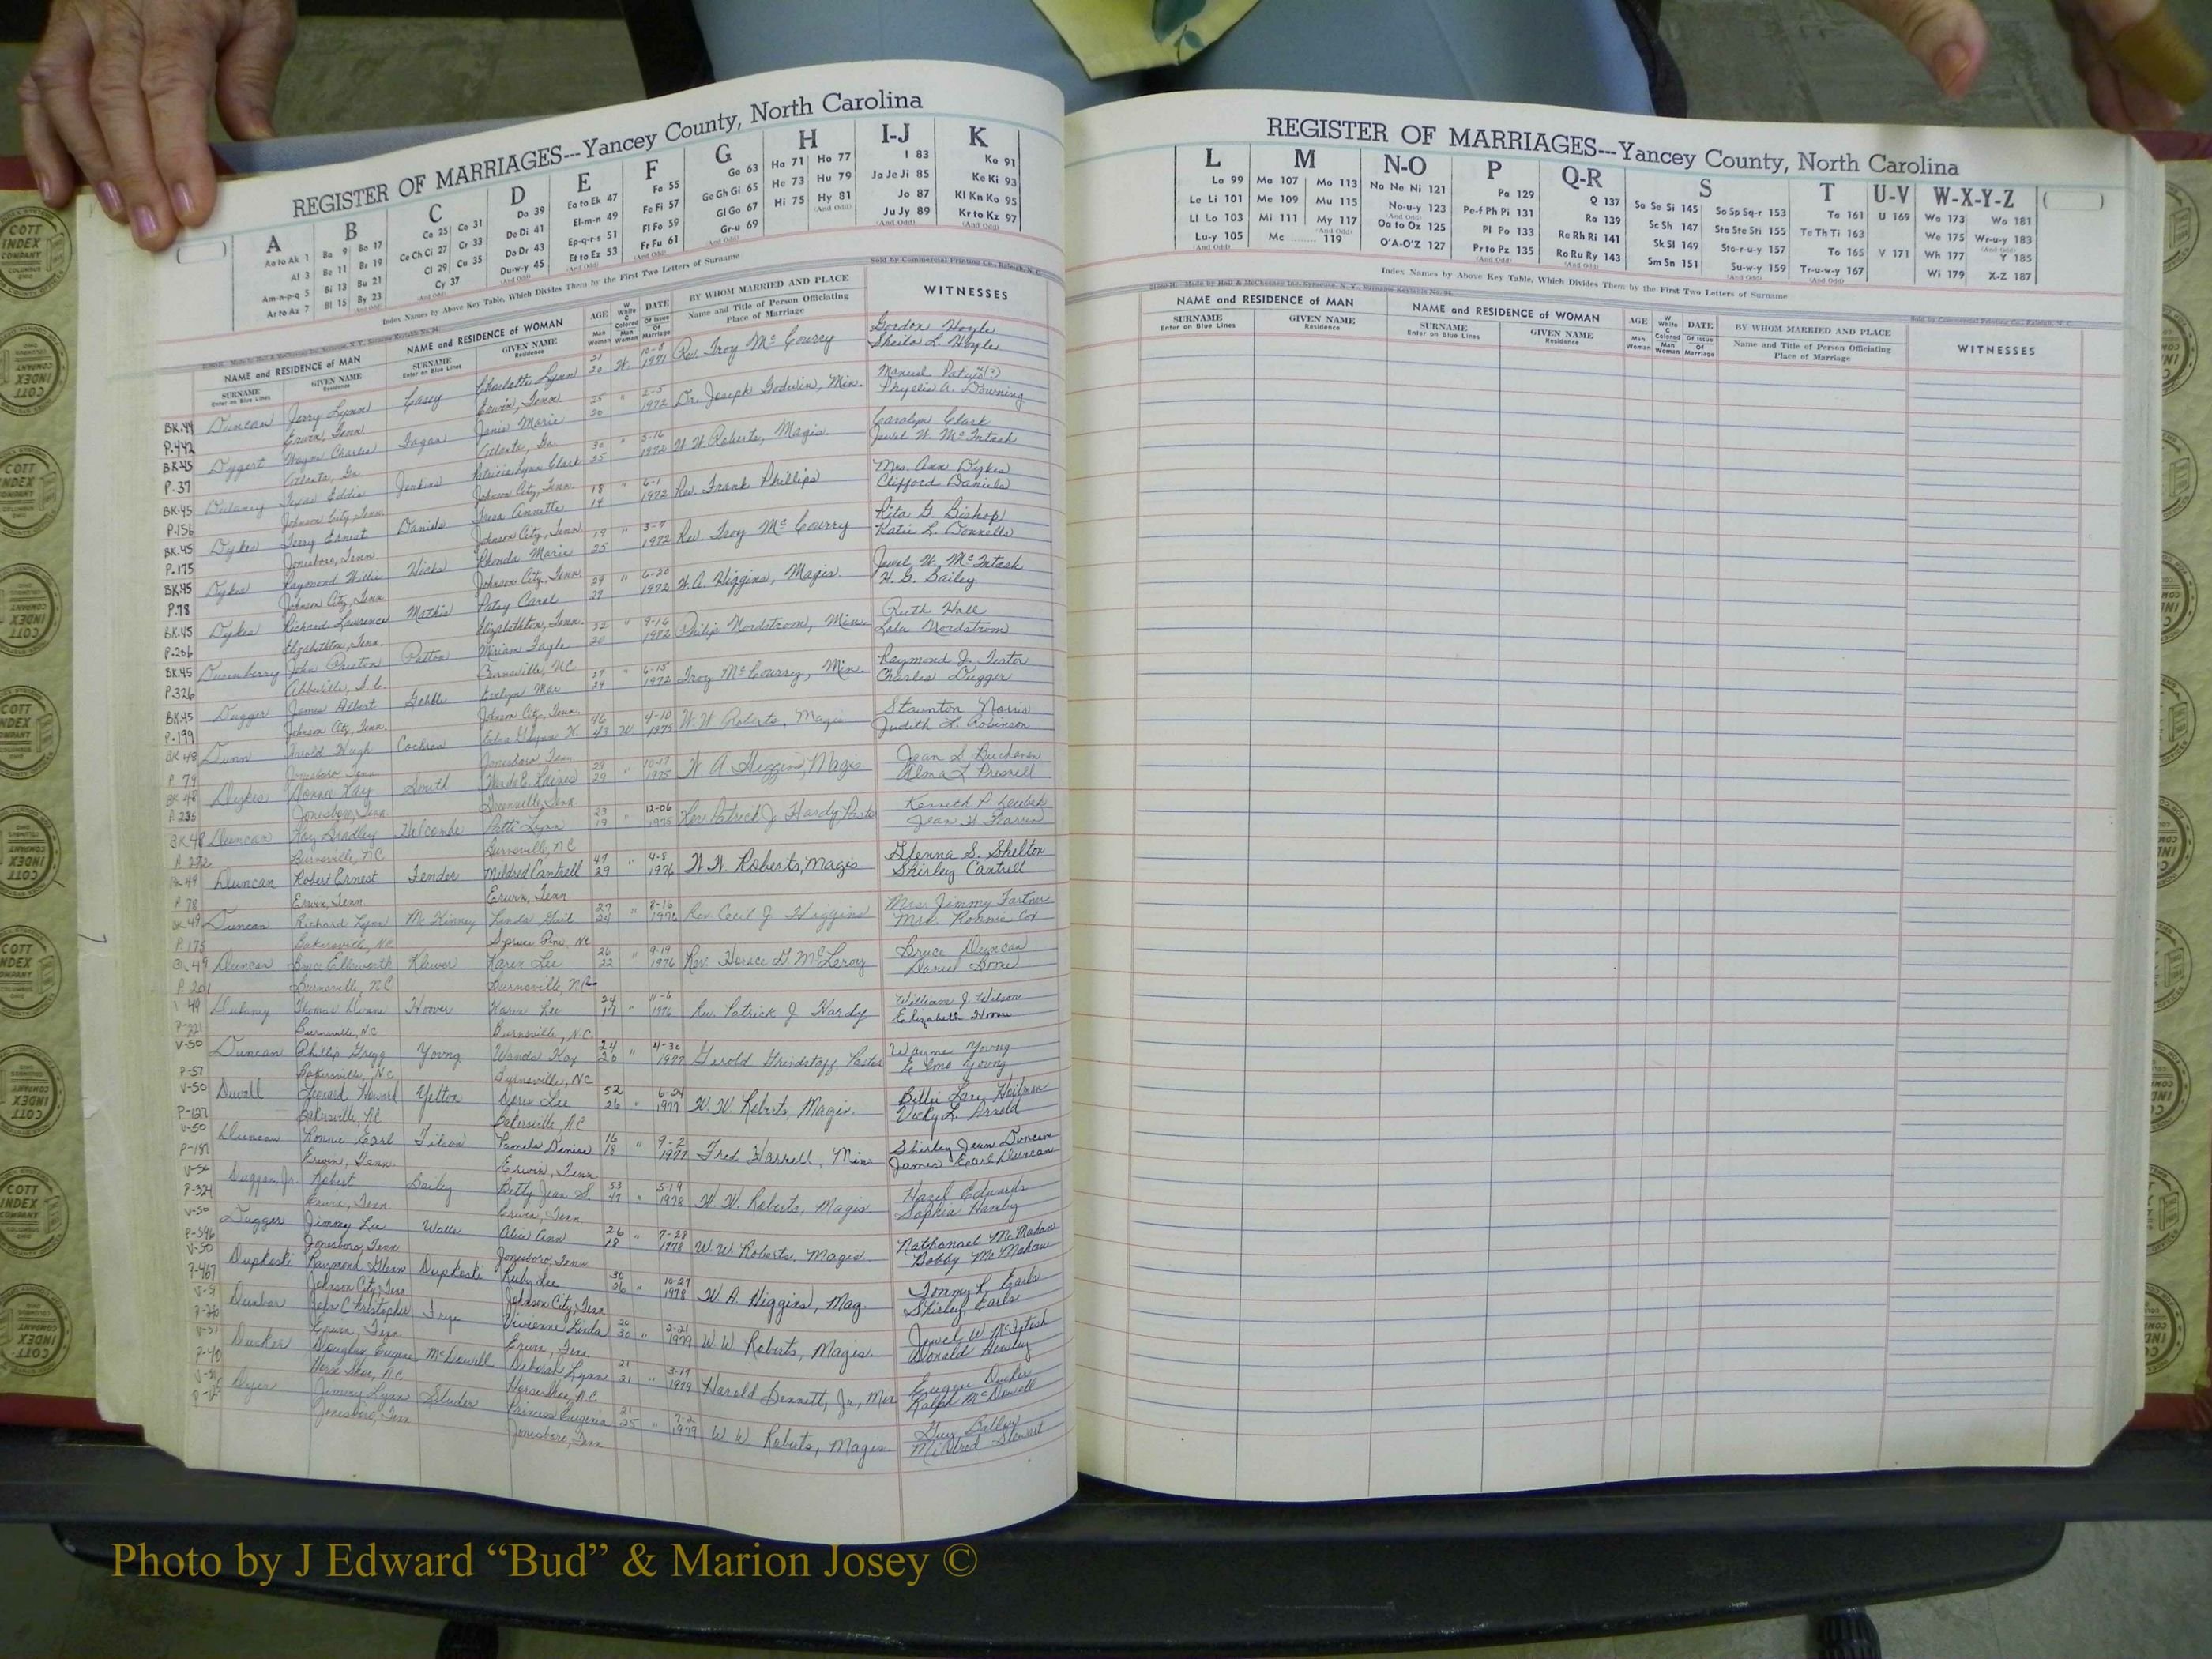 REGISTER OF MARRIAGES---Yancey County, North Carolina
A B C D E F G H I-J K
Aa to Ak 1 Ba 9 Bo 17 Ca 25 Co 31 Da 39 Ea to Ek 47 Fa 55 Ga 63 Ha 71 Ho 77 I 83 Ka 91
Al 3 Be 11 Br 19 Ce Ch Ci 27 Cr 33 De Di 41 El-m-n 49 Fe Fi 57 Ge Gh Gi 65 He 73 Hu 79 Ja Je Ji 85 Ke Ki 93
Am-n-p-q 5 Bi 13 Bu 21 Cl 29 Cu 35 Do Dr 43 Ep-q-r-s 51 Fl Fo 59 Gl Go 67 Hi 75 Hy 81 Jo 87 Kl Kn Ko 95
Ar to Az 7 Bl 15 By 23 Cy 37 Du-w-y 45 Et to Ez 53 Fr Fu 61 Gr-u 69 Ju Jy 89 Kr to Kz 97
Index Names by Above Key Table, Which Divides Them by the First Two Letters of Surname
Sold by Commercial Printing Co., Raleigh, N. C.
NAME and RESIDENCE of MAN NAME and RESIDENCE of WOMAN AGE W White C Colored DATE Of Issue BY WHOM MARRIED AND PLACE WITNESSES
SURNAME Enter on Blue Lines GIVEN NAME Residence SURNAME Enter on Blue Lines GIVEN NAME Residence Man Woman Man Woman Of Marriage Name and Title of Person Officiating Place of Marriage
BK.44 Duncan Jerry Lynn Casey Charlotte Lynn 21 20 W. 10-8 1971 Rev. Troy Mc Courry Gordon Hoyle
P.442 Erwin, Tenn Erwin, Tenn. Sheila L. Hoyle
BK.45 Dygert Wayne Charles Fagan Janis Marie 25 20 " 2-5 1972 Dr. Joseph Goderin, Min. Manuel
P.37 Atlanta, Ga. Atlanta, Ga. Phyllis A. Downing
BK.45 Dulaney Texas Eddie Jenkins Patricia Lynn Clark 30 25 " 5-16 1972 W. W. Roberts, Magis. Carolyn Clark
P.156 Johnson City, Tenn. Johnson City, Tenn. Jewel W. McIntosh
BK.45 Dykes Terry Ernest Daniels Teresa Annette 18 14 " 6-1 1972 Rev. Frank Phillips Mrs. Ann Dykes
P.175 Jonesboro, Tenn. Johnson City, Tenn Clifford Daniels
BK.45 Dykes Raymond Willie Hicks Rhonda Marie 19 25 " 3-9 1972 Rev. Troy Mc Courry Rita G. Bishop
P.78 Johnson City, Tenn. Johnson City, Tenn. Katie L. Donnells
BK.45 Dykes Richard Lawrence Mathis Patsy Carol 29 27 " 6-20 1972 W. A. Higgins, Magis. Jewel W. McIntosh
P.206 Elizabethton, Tenn. Elizabethton, Tenn. H. G. Bailey
BK.45 Dusenberry John Preston Patton Miriam Fayle 22 20 " 9-16 1972 Philip Nordstrom, Min. Ruth Hall
P.326 Abbeville, S.C. Burnsville, NC Lala Nordstrom
BK.45 Dugger James Albert Goble Evelyn Mae 27 24 " 6-15 1972 Troy McCourry, Min. Raymond J. Tester
P.199 Johnson City, Tenn. Johnson City, Tenn. Charles Dugger
BK 48 Dunn Harold Hugh Cochran Edna Glynn K. 46 43 W 4-10 1975 W. W. Roberts, Magis Staunton Norris
P. 79 Jonesboro Tenn Jonesboro Tenn Judith L. Robinson
BK 48 Dykes Donnie Ray Smith 29 29 " 10-17 1975 W A. Higgins, Magis. Jean S Buchanan
P.235 Jonesboro, Tenn. Greenville, Tenn Alma L Presnell
BK 48 Duncan Roy Bradley Holcombe Patti Lynn 23 19 " 12-06 1975 Rev. Patrick J. Hardy Pastor Kenneth P
P. 272 Burnsville, NC Burnsville, NC Jean H
BK 49 Duncan Robert Ernest Fender Mildred Cantrell 47 29 " 4-8 1976 W. W. Roberts, Magis. Glenna S. Shelton
P. 78 Erwin, Tenn Erwin, Tenn Shirley Cantrell
BK 49 Duncan Richard Lynn McKinney Linda Gail 27 24 " 8-16 1976 Rev Cecil J Higgins Mrs. Jimmy Fortner
P. 175 Bakersville, NC Spruce Pine NC Mrs. Ronnie Cox
BK 49 Duncan Bruce Ellsworth Karen Lee 26 22 " 9-19 1976 Rev. Horace G McLeroy Bruce Duncan
P. 201 Burnsville, NC Burnsville, NC Daniel Boone
V 49 Dulaney Thomas Hoover Karen Lee 24 17 " 11-6 1976 Rev. Patrick J Hardy William J. Wilson
P-221 Burnsville, NC Burnsville, N.C. Elizabeth
V-50 Duncan Phillip Gregg Young Wanda Kay 24 20 " 4-30 1977 Gerold Grindstaff Pastor Wayne Young
P-57 Bakersville, NC Burnsville, NC Elmo Young
V-50 Duvall Leonard Howard Yelton Doris Lee 52 26 " 6-24 1977 W. W. Roberts, Magis. Billie
P-127 Bakersville, NC Bakersville, NC Vicky L. Arnold
V-50 Duncan Ronnie Earl Tilson Pamela Denise 16 18 " 9-2 1977 Fred Harrell, Min Shirley Jean Duncan
P-187 Erwin, Tenn. Erwin, Tenn James Earl Duncan
V-50 Dugger, Jr. Robert Bailey Betty Jean S. 53 47 " 5-19 1978 W. W. Roberts, Magis Hazel Edwards
P-324 Erwin, Tenn Erwin, Tenn. Sophia Hamby
V-50 Dugger Jimmy Lee Walls Alice Ann 26 18 " 7-28 1978 W. W. Roberts, Magis. Nathanael McMahan
P-396 Jonesboro, Tenn Jonesboro, Tenn Bobby McMahan
V-50 Dupkoski Raymond Glenn Dupkoski Ruby Lee 30 26 " 10-27 1978 W. A. Higgins, Mag. Tommy R. Earls
P-467 Johnson City, Tenn Johnson City, Tenn Shirley Earls
V-51 Dunbar John Christopher Frye Vivienne Linda 20 30 " 2-21 1979 W. W Roberts, Magis. Jewel W McIntosh
Erwin, Tenn. Erwin, Tenn Donald
V-51 Ducker Douglas Eugene McDowell Deborah Lynn 21 21 " 3-17 1979 Harold Bennett, Jr., Min Eugene Ducker
P-40 Horse Shoe, NC Horse Shoe, N.C Ralph McDowell
Dyer Jimmy Lynn Studer Eugenia 21 25 " 7-2 1979 W W Roberts, Magis. Guy Ballew
Jonesboro, Tenn Jonesboro, Tenn Mildred Stewart
REGISTER OF MARRIAGES---Yancey County, North Carolina
L M N-O P Q-R S T U-V W-X-Y-Z
La 99 Ma 107 Mo 113 Na Ne Ni 121 Pa 129 Q 137 Sa Se Si 145 So Sp Sq-r 153 Ta 161 U 169 Wa 173 Wo 181
Le Li 101 Me 109 Mu 115 No-u-y 123 Pe-f Ph Pi 131 Ra 139 Sc Sh 147 Sta Ste Sti 155 Te Th Ti 163 We 175 Wr-u-y 183
Ll Lo 103 Mi 111 My 117 Oa to Oz 125 Pl Po 133 Re Rh Ri 141 Sk Sl 149 Sto-r-u-y 157 To 165 V 171 Wh 177 Y 185
Lu-y 105 Mc 119 O'A-O'Z 127 Pr to Pz 135 Ro Ru Ry 143 Sm Sn 151 Su-w-y 159 Tr-u-w-y 167 Wi 179 X-Z 187
Index Names by Above Key Table, Which Divides Them by the First Two Letters of Surname
NAME and RESIDENCE of MAN NAME and RESIDENCE of WOMAN AGE W White C Colored DATE Of Issue BY WHOM MARRIED AND PLACE WITNESSES
SURNAME Enter on Blue Lines GIVEN NAME Residence SURNAME Enter on Blue Lines GIVEN NAME Residence Man Woman Man Woman Of Marriage Name and Title of Person Officiating Place of Marriage
COTT INDEX COMPANY
Photo by J Edward “Bud” & Marion Josey ©